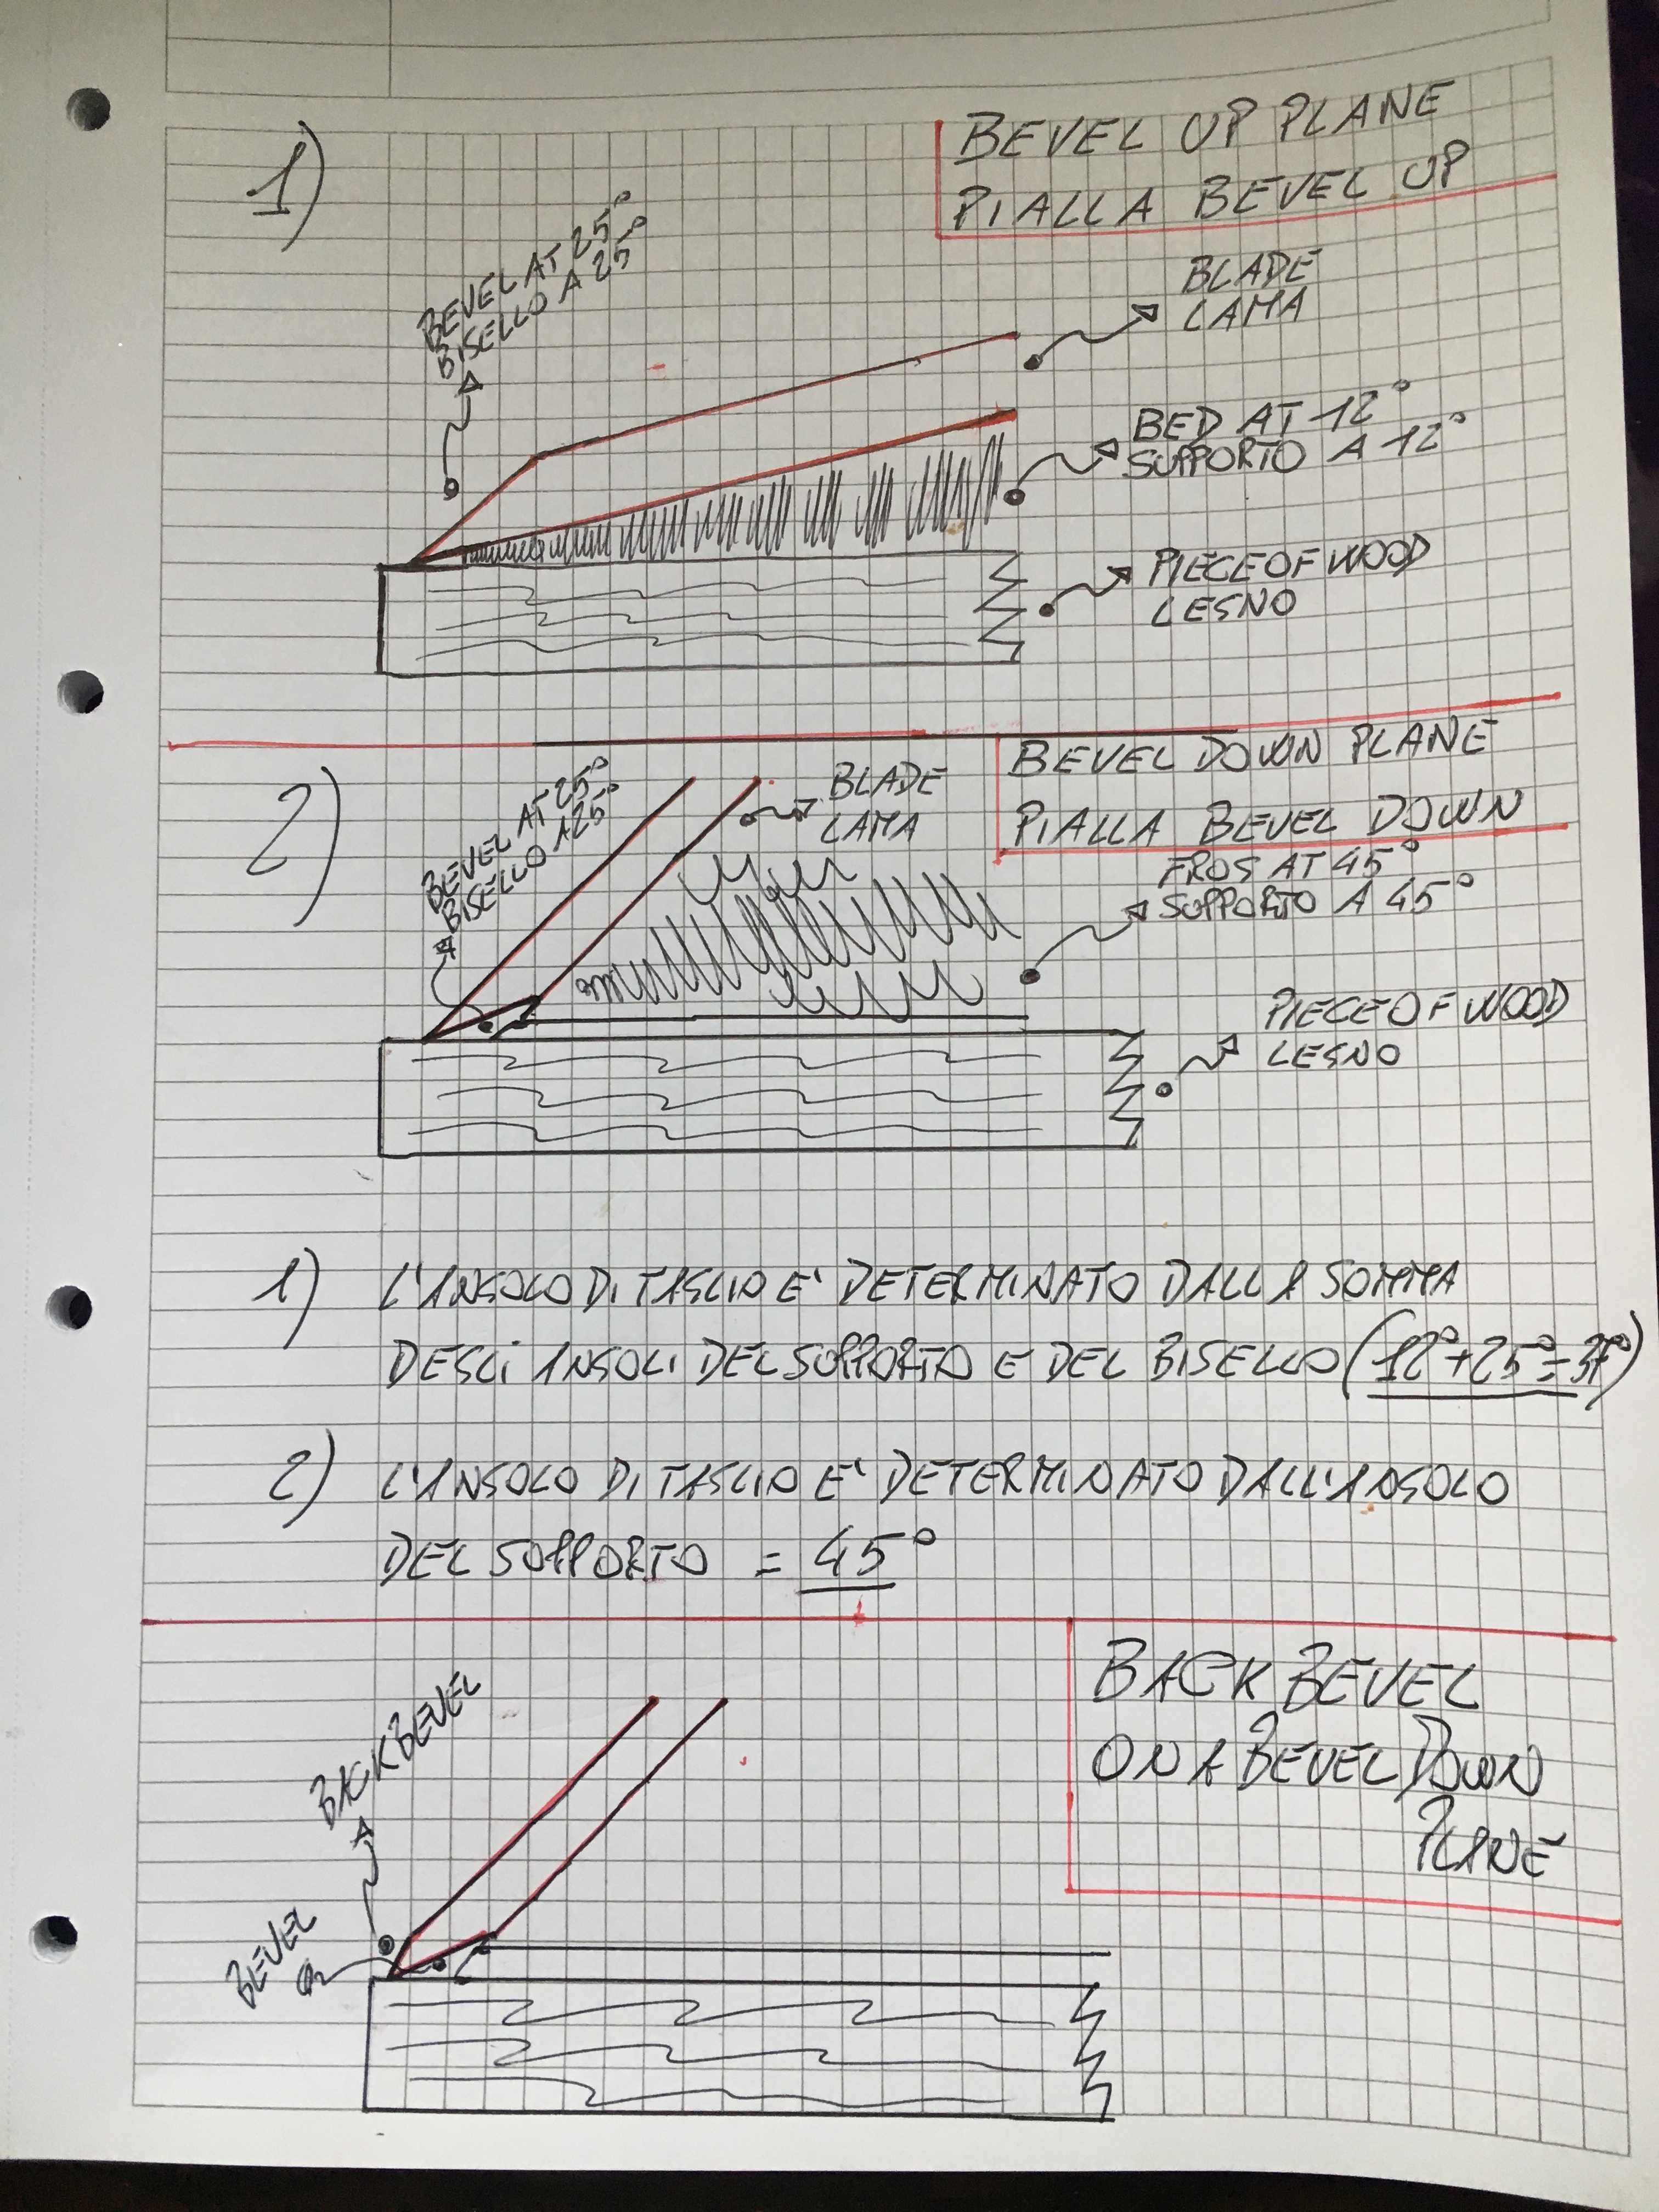 1)
BEVEL UP PLANE
PIALLA BEVEL UP
BEVEL AT 25°
BISELLO A 25°
BLADE
LAMA
BED AT 12°
SUPPORTO A 12°
PIECE OF WOOD
LEGNO
2)
BEVEL DOWN PLANE
PIALLA BEVEL DOWN
BEVEL AT 25°
BISELLO A 25°
BLADE
LAMA
FROG AT 45°
SUPPORTO A 45°
PIECE OF WOOD
LEGNO
1) L'ANGOLO DI TAGLIO E' DETERMINATO DALLA SOMMA
DEGLI ANGOLI DEL SUPPORTO E DEL BISELLO (12°+25°=37°)
2) L'ANGOLO DI TAGLIO E' DETERMINATO DALL'ANGOLO
DEL SUPPORTO = 45°
BACK BEVEL
ON A BEVEL DOWN
PLANE
BACK BEVEL
BEVEL